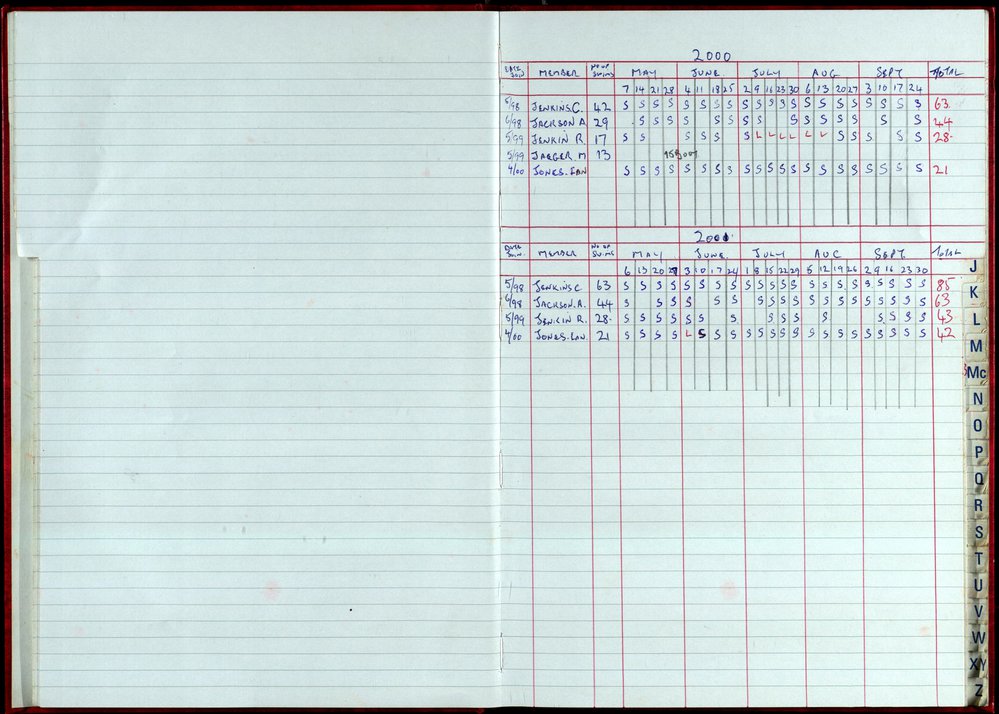 2000
DATE JOIN MEMBER NO OF SWIMS MAY JUNE. JULY AUG SEPT TOTAL
7 14 21 28 4 11 18 25 2 9 16 23 30 6 13 20 27 3 10 17 24
5/98 JENKINS.C. 42 S S S S S S S S S S S S S S S S S S S S S 63
6/98 JACKSON A 29 S S S S S S S S S S S S S S S 44
5/99 JENKIN R. 17 S S S S S S L L L L L L S S S S S 28-
5/99 JAEGER M 13
4/00 JONES.EAN S S S S S S S S S S S S S S S S S S S S S 21
2001
DATE JOIN. MEMBER NO OF SWIMS MAY JUNE JULY AUG SEPT. TOTAL
6 13 20 27 3 10 17 24 1 8 15 22 29 5 12 19 26 2 9 16 23 30
5/98 JENKINS C 63 S S S S S S S S S S S S S S S S S S S S S S 85
6/98 JACKSON.A. 44 S S S S S S S S S S S S S S S S S S S 63
5/99 JENKIN R. 28- S S S S S S S S S S S S S S S 43
4/00 JONES.EAN. 21 S S S S L S S S S S S S S S S S S S S S S S 42
J
K
L
M
Mc
N
O
P
Q
R
S
T
U
V
W
XY
Z